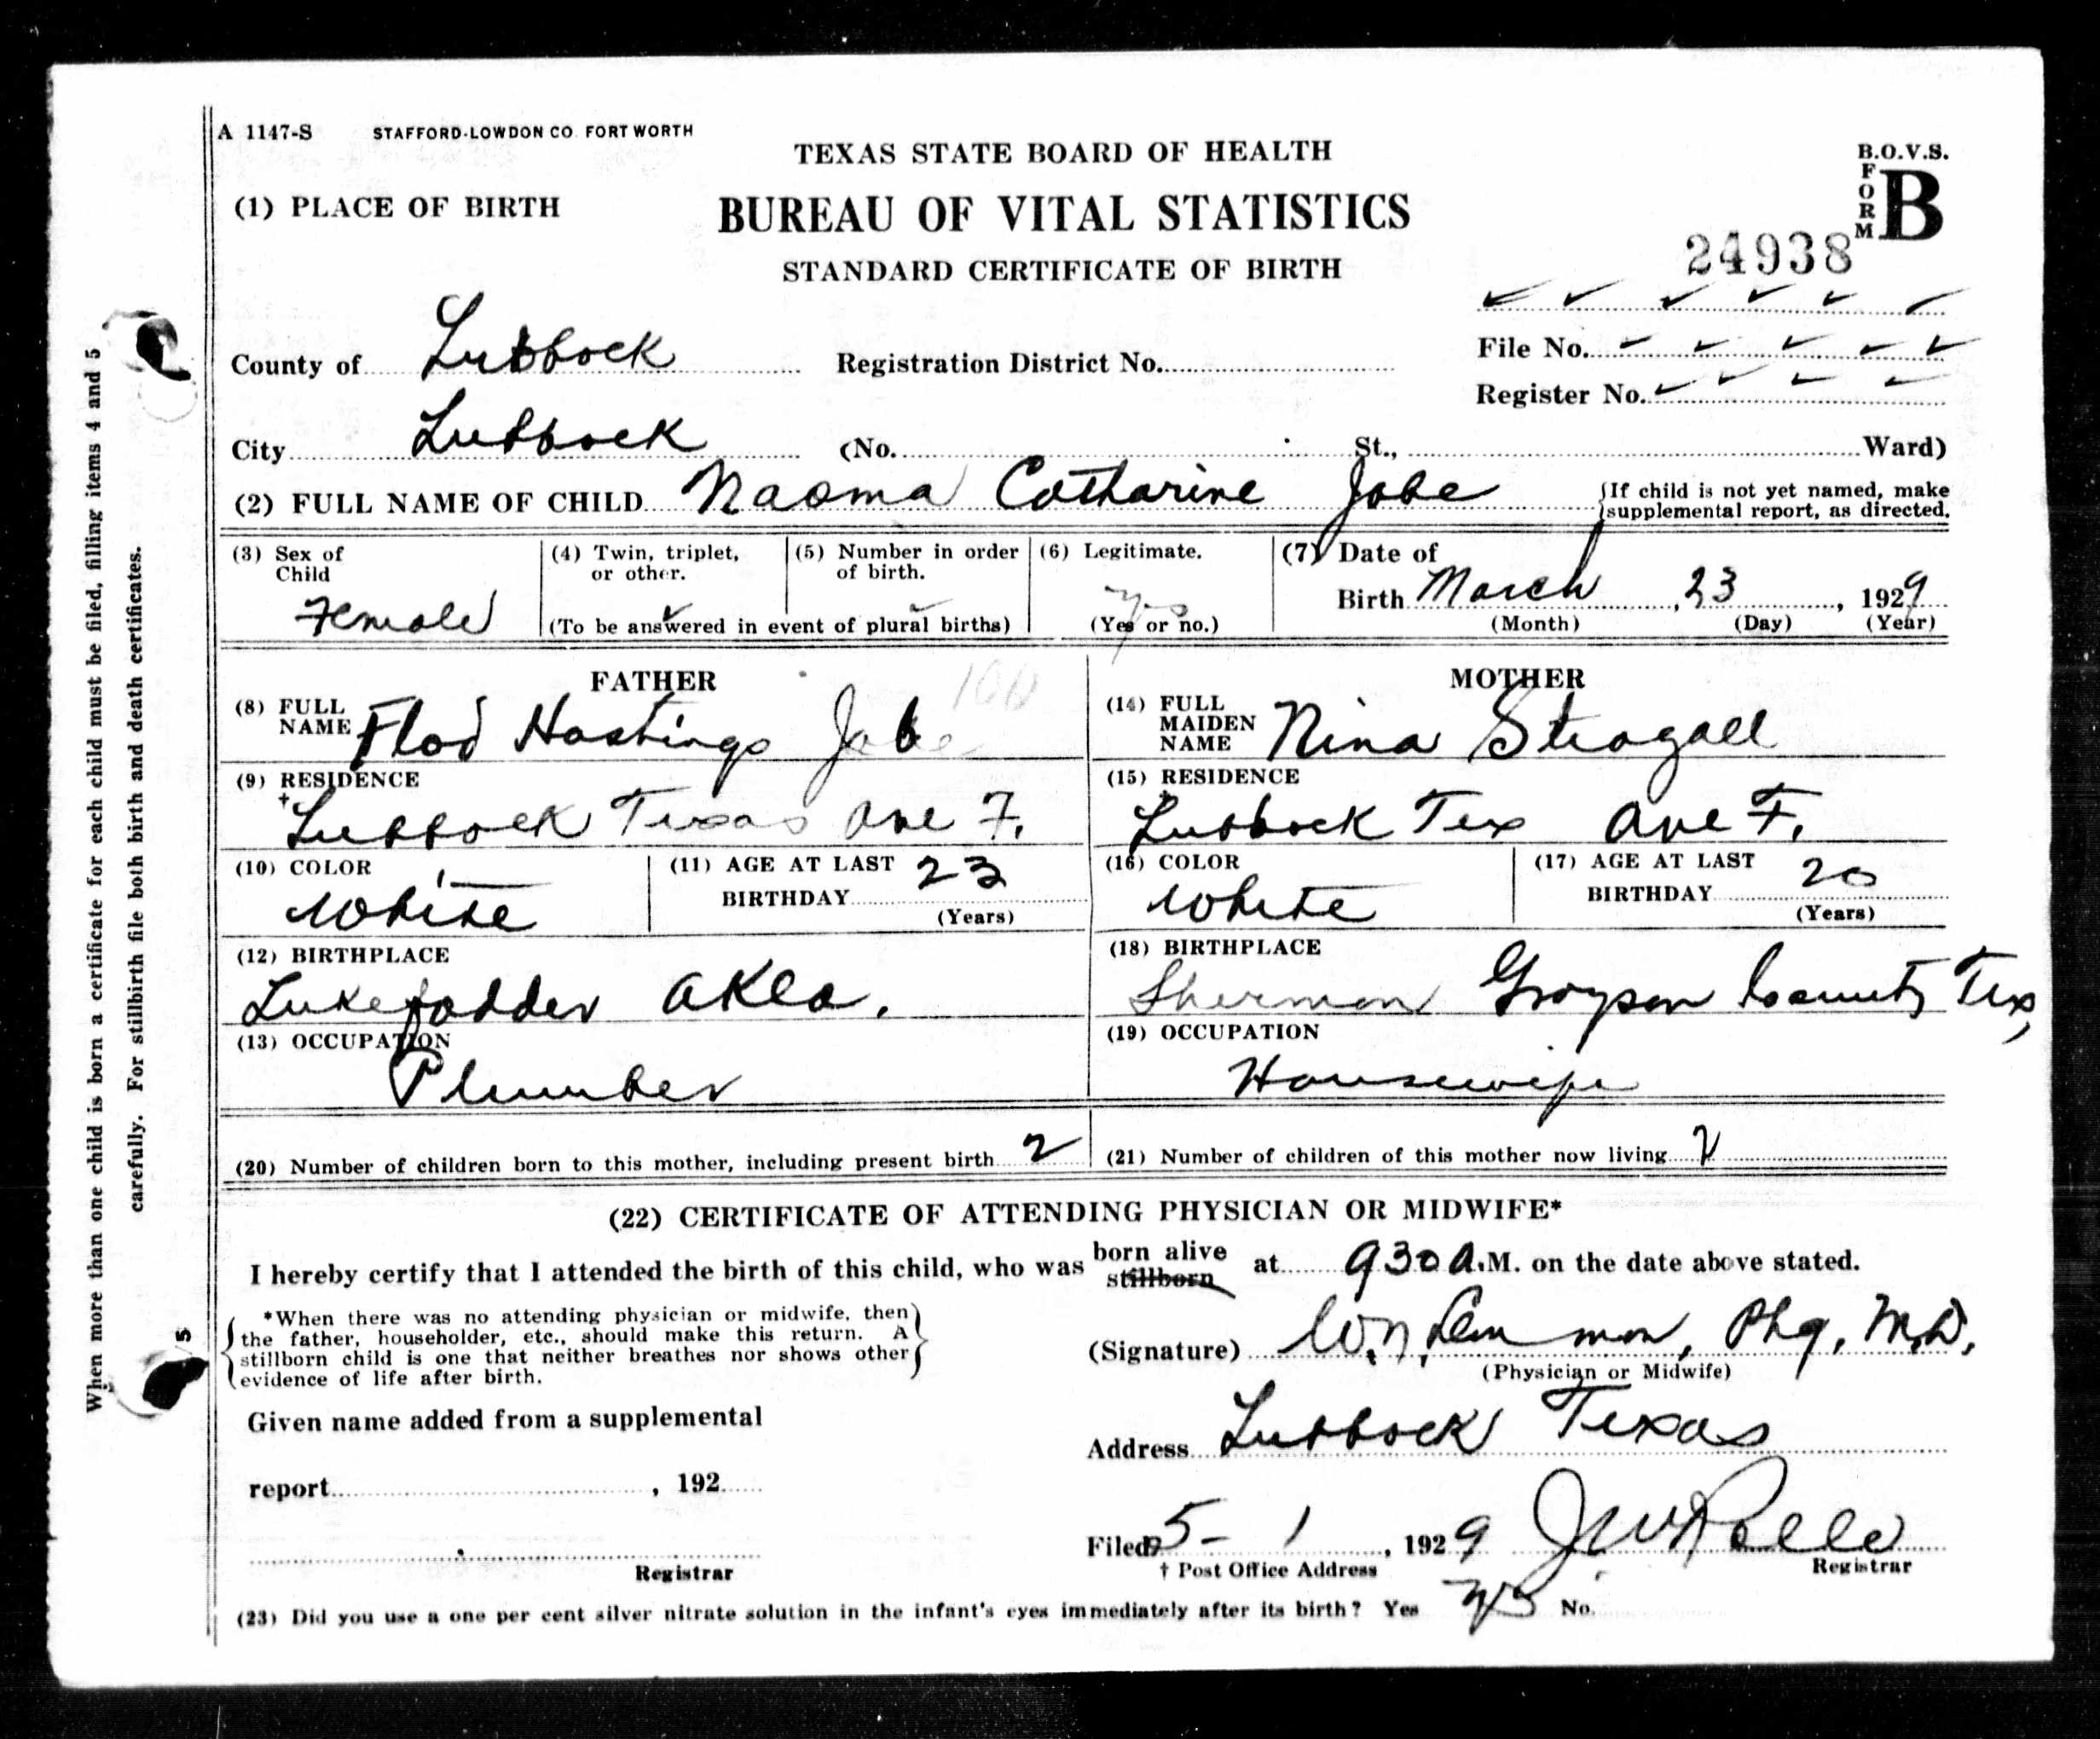 A 1147-S STAFFORD-LOWDON CO. FORT WORTH
TEXAS STATE BOARD OF HEALTH
B.O.V.S.
FORM B
(1) PLACE OF BIRTH
BUREAU OF VITAL STATISTICS
24938
STANDARD CERTIFICATE OF BIRTH
County of Lubbock Registration District No.
File No.
Register No.
City Lubbock (No. St., Ward)
(2) FULL NAME OF CHILD Naoma Catharine Jobe {If child is not yet named, make
supplemental report, as directed.
(3) Sex of Child Female
(4) Twin, triplet, or other.
(5) Number in order of birth.
(To be answered in event of plural births)
(6) Legitimate. Yes
(Yes or no.)
(7) Date of
Birth March 23, 1929
(Month) (Day) (Year)
FATHER
(8) FULL NAME Flod Hastings Jobe
(9) RESIDENCE
† Lubbock Texas Ave F.
(10) COLOR
White
(11) AGE AT LAST BIRTHDAY 23
(Years)
(12) BIRTHPLACE
Lukefadder Okla.
(13) OCCUPATION
Plumber
MOTHER
(14) FULL MAIDEN NAME Nina Stragall
(15) RESIDENCE
Lubbock Tex Ave F.
(16) COLOR
White
(17) AGE AT LAST BIRTHDAY 20
(Years)
(18) BIRTHPLACE
Sherman Grayson County Tex,
(19) OCCUPATION
Housewife
(20) Number of children born to this mother, including present birth 2
(21) Number of children of this mother now living 2
(22) CERTIFICATE OF ATTENDING PHYSICIAN OR MIDWIFE*
I hereby certify that I attended the birth of this child, who was born alive stillborn at 930 A.M. on the date above stated.
{*When there was no attending physician or midwife, then
the father, householder, etc., should make this return. A
stillborn child is one that neither breathes nor shows other
evidence of life after birth.}
(Signature) W. N. Lemmon, Phy, M.D.
(Physician or Midwife)
Given name added from a supplemental
Address Lubbock Texas
report , 192
Filed 5-1, 1929
Registrar
† Post Office Address
Registrar
(23) Did you use a one per cent silver nitrate solution in the infant's eyes immediately after its birth? Yes yes No.
When more than one child is born a certificate for each child must be filed, filling items 4 and 5
carefully. For stillbirth file both birth and death certificates.